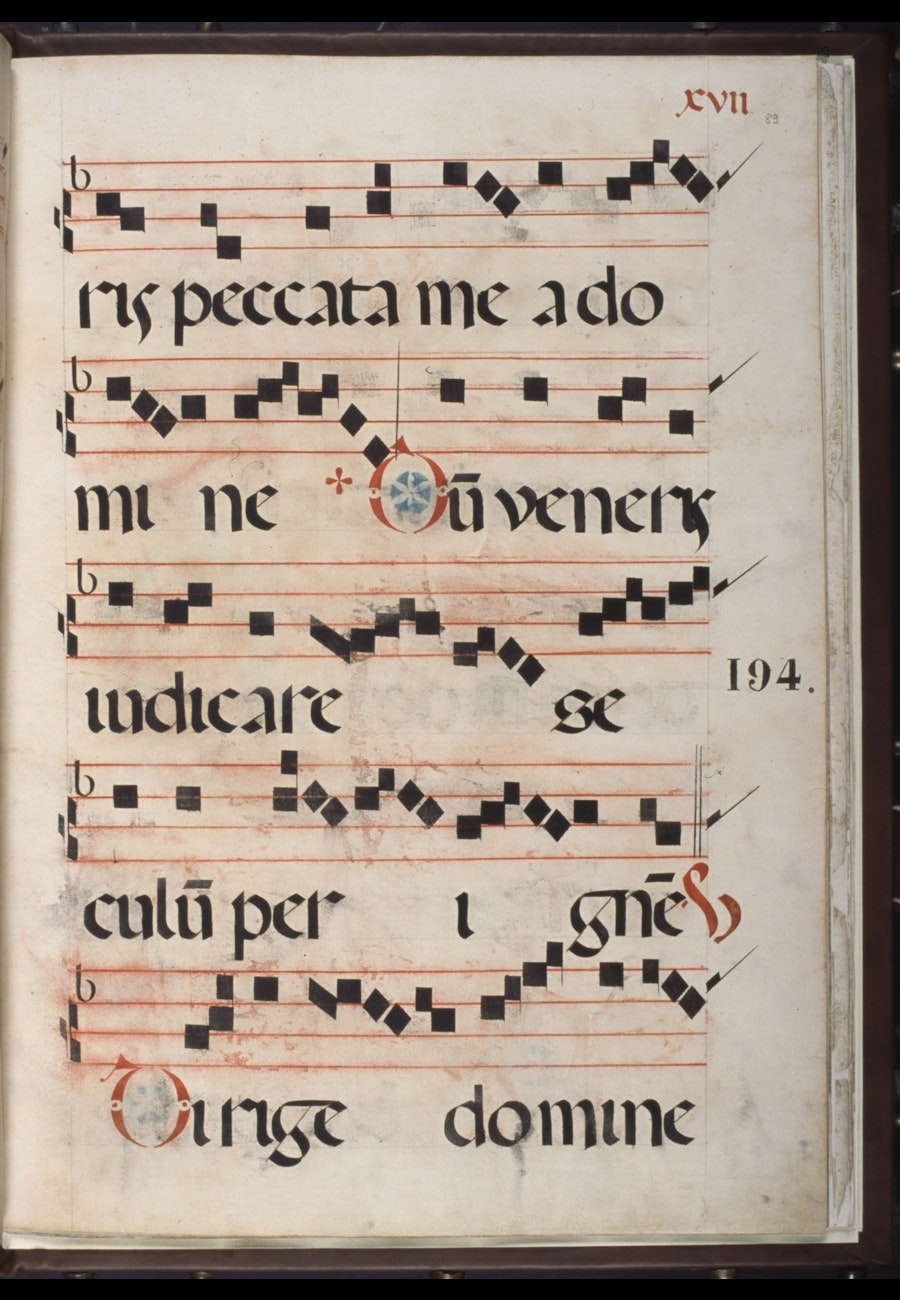 xvii
89
ris peccata me a do
mi ne Dū veneris
iudicare se
culū per i gnē V
Dirige domine
194.